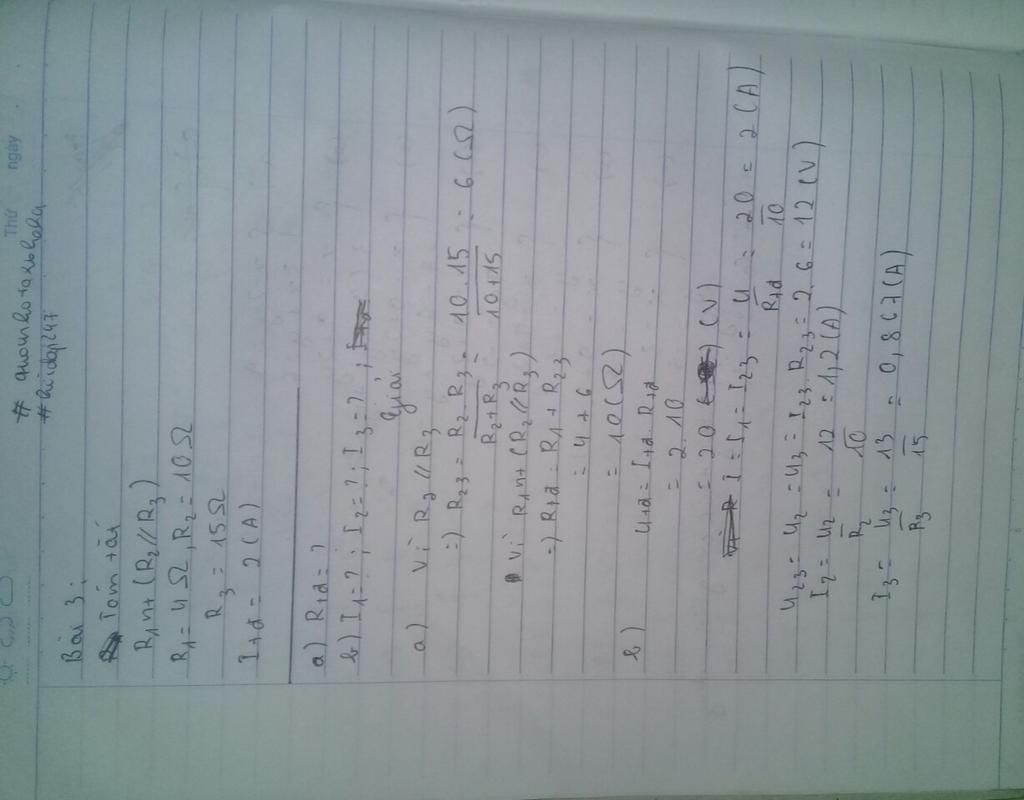 Thứ ngày
# quoankotaxbahdu
# hoidap247
Bài 3:
Tóm tắt
R1 nt (R2 // R3)
R1 = 4 Ω, R2 = 10 Ω
R3 = 15 Ω
Itđ = 2 (A)
a) Rtđ = ?
b) I1 = ?; I2 = ?; I3 = ?;
Giải
a) Vì R2 // R3
=) R23 = R2.R3/R2+R3 = 10.15/10+15 = 6 (Ω)
Vì R1 nt (R2 // R3)
=) Rtđ = R1 + R23
= 4 + 6
= 10 (Ω)
b) Utđ = Itđ. Rtđ
= 2.10
= 20 (V)
I = I1 = I23 = U/Rtđ = 20/10 = 2 (A)
U23 = U2 = U3 = I23. R23 = 2.6 = 12 (V)
I2 = U2/R2 = 12/10 = 1,2 (A)
I3 = U3/R3 = 13/15 = 0,867 (A)